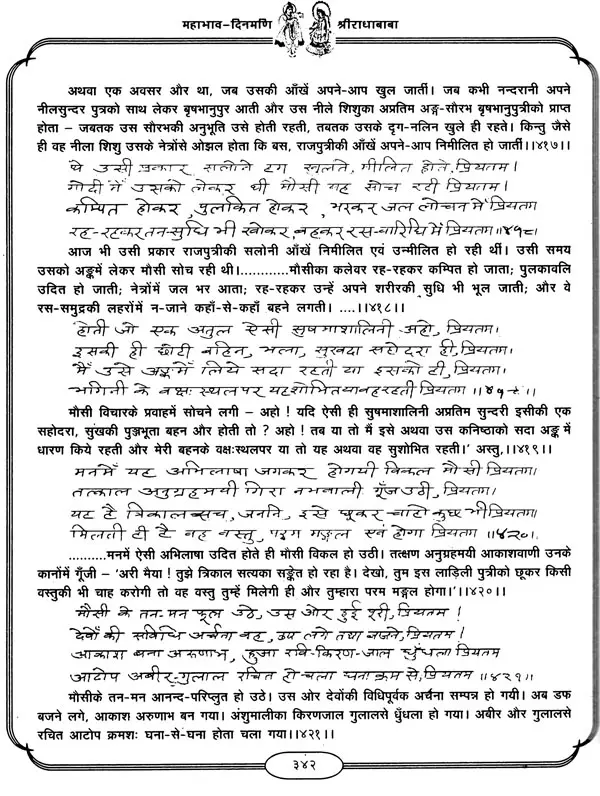 महाभाव-दिनमणि श्रीराधाबाबा
अथवा एक अवसर और था, जब उसकी आँखें अपने-आप खुल जातीं। जब कभी नन्दरानी अपने
नीलसुन्दर पुत्रको साथ लेकर बृषभानुपुर आती और उस नीले शिशुका अप्रतिम अङ्ग-सौरभ बृषभानुपुत्रीको प्राप्त
होता – जबतक उस सौरभकी अनुभूति उसे होती रहती, तबतक उसके दृग-नलिन खुले ही रहते। किन्तु जैसे
ही वह नीला शिशु उसके नेत्रोंसे ओझल होता कि बस, राजपुत्रीकी आँखें अपने-आप निमीलित हो जातीं।।४१७।।
थे उसी प्रकार सलोने दृग खुलते, मीलित होते, प्रियतम।
गोदी में उसको लेकर थी मौसी यह सोच रही प्रियतम।
कम्पित होकर, पुलकित होकर, भरकर जल लोचनमें प्रियतम
रह-रहकर तन-सुधि भी खोकर, बहकर रस-वारिधिमें प्रियतम॥४१८।
आज भी उसी प्रकार राजपुत्रीकी सलोनी आँखें निमीलित एवं उन्मीलित हो रही थीं। उसी समय
उसको अङ्कमें लेकर मौसी सोच रही थी।............मौसीका कलेवर रह-रहकर कम्पित हो जाता; पुलकावलि
उदित हो जाती; नेत्रोंमें जल भर आता; रह-रहकर उन्हें अपने शरीरकी सुधि भी भूल जाती; और वे
रस-समुद्रकी लहरोंमें न-जाने कहाँ-से-कहाँ बहने लगती। ....।।४१८।।
होती जो एक अतुल ऐसी सुषमाशालिनी अहो, प्रियतम।
इसकी ही छोटी बहिन, भला, सुखदा सहोदरा ही, प्रियतम।
मैं उसे अङ्कमें लिये सदा रहती या इसको ही, प्रियतम।
भगिनी के वक्षःस्थलपर यह शोभित या वह रहती प्रियतम॥४१९।
मौसी विचारके प्रवाहमें सोचने लगी – अहो ! यदि ऐसी ही सुषमाशालिनी अप्रतिम सुन्दरी इसीकी एक
सहोदरा, सुंखकी पुञ्जभूता बहन और होती तो ? अहो ! तब या तो मैं इसे अथवा उस कनिष्ठाको सदा अङ्क में
धारण किये रहती और मेरी बहनके वक्षःस्थलपर या तो यह अथवा वह सुशोभित रहती।' अस्तु,।।४१९।।
मनमें यह अभिलाषा जगकर होगयी विकल मौसी प्रियतम।
तत्काल अनुग्रहमयी गिरा नभवाली गूँज उठी, प्रियतम।
यह है त्रिकालसच, जननि, इसे छूकर चाहो कुछ भी प्रियतम
मिलती ही है वह वस्तु, परम मङ्गल एवं होगा प्रियतम॥४२०।
..........मनमें ऐसी अभिलाषा उदित होते ही मौसी विकल हो उठी। तत्क्षण अनुग्रहमयी आकाशवाणी उनके
कानोंमें गूँजी – 'अरी मैया ! तुझे त्रिकाल सत्यका सङ्केत हो रहा है। देखो, तुम इस लाड़िली पुत्रीको छूकर किसी
वस्तुकी भी चाह करोगी तो वह वस्तु तुम्हें मिलेगी ही और तुम्हारा परम मङ्गल होगा।'।।४२०।।
मौसी के तन-मन फूल उठे, उस ओर हुई पूरी, प्रियतम !
देवों की सविधि अर्चना वह, डफ लगे तथा बजने, प्रियतम।
आकाश बना अरुणाभ, हुआ रवि-किरण-जाल धुँधला प्रियतम
आटोप अबीर-गुलाल रचित हो चला घना क्रमसे, प्रियतम॥४२१।
मौसीके तन-मन आनन्द-परिप्लुत हो उठे। उस ओर देवोंकी विधिपूर्वक अर्चना सम्पन्न हो गयी। अब डफ
बजने लगे, आकाश अरुणाभ बन गया। अंशुमालीका किरणजाल गुलालसे धुँधला हो गया। अबीर और गुलालसे
रचित आटोप क्रमशः घना-से-घना होता चला गया।।४२१।।
३४२